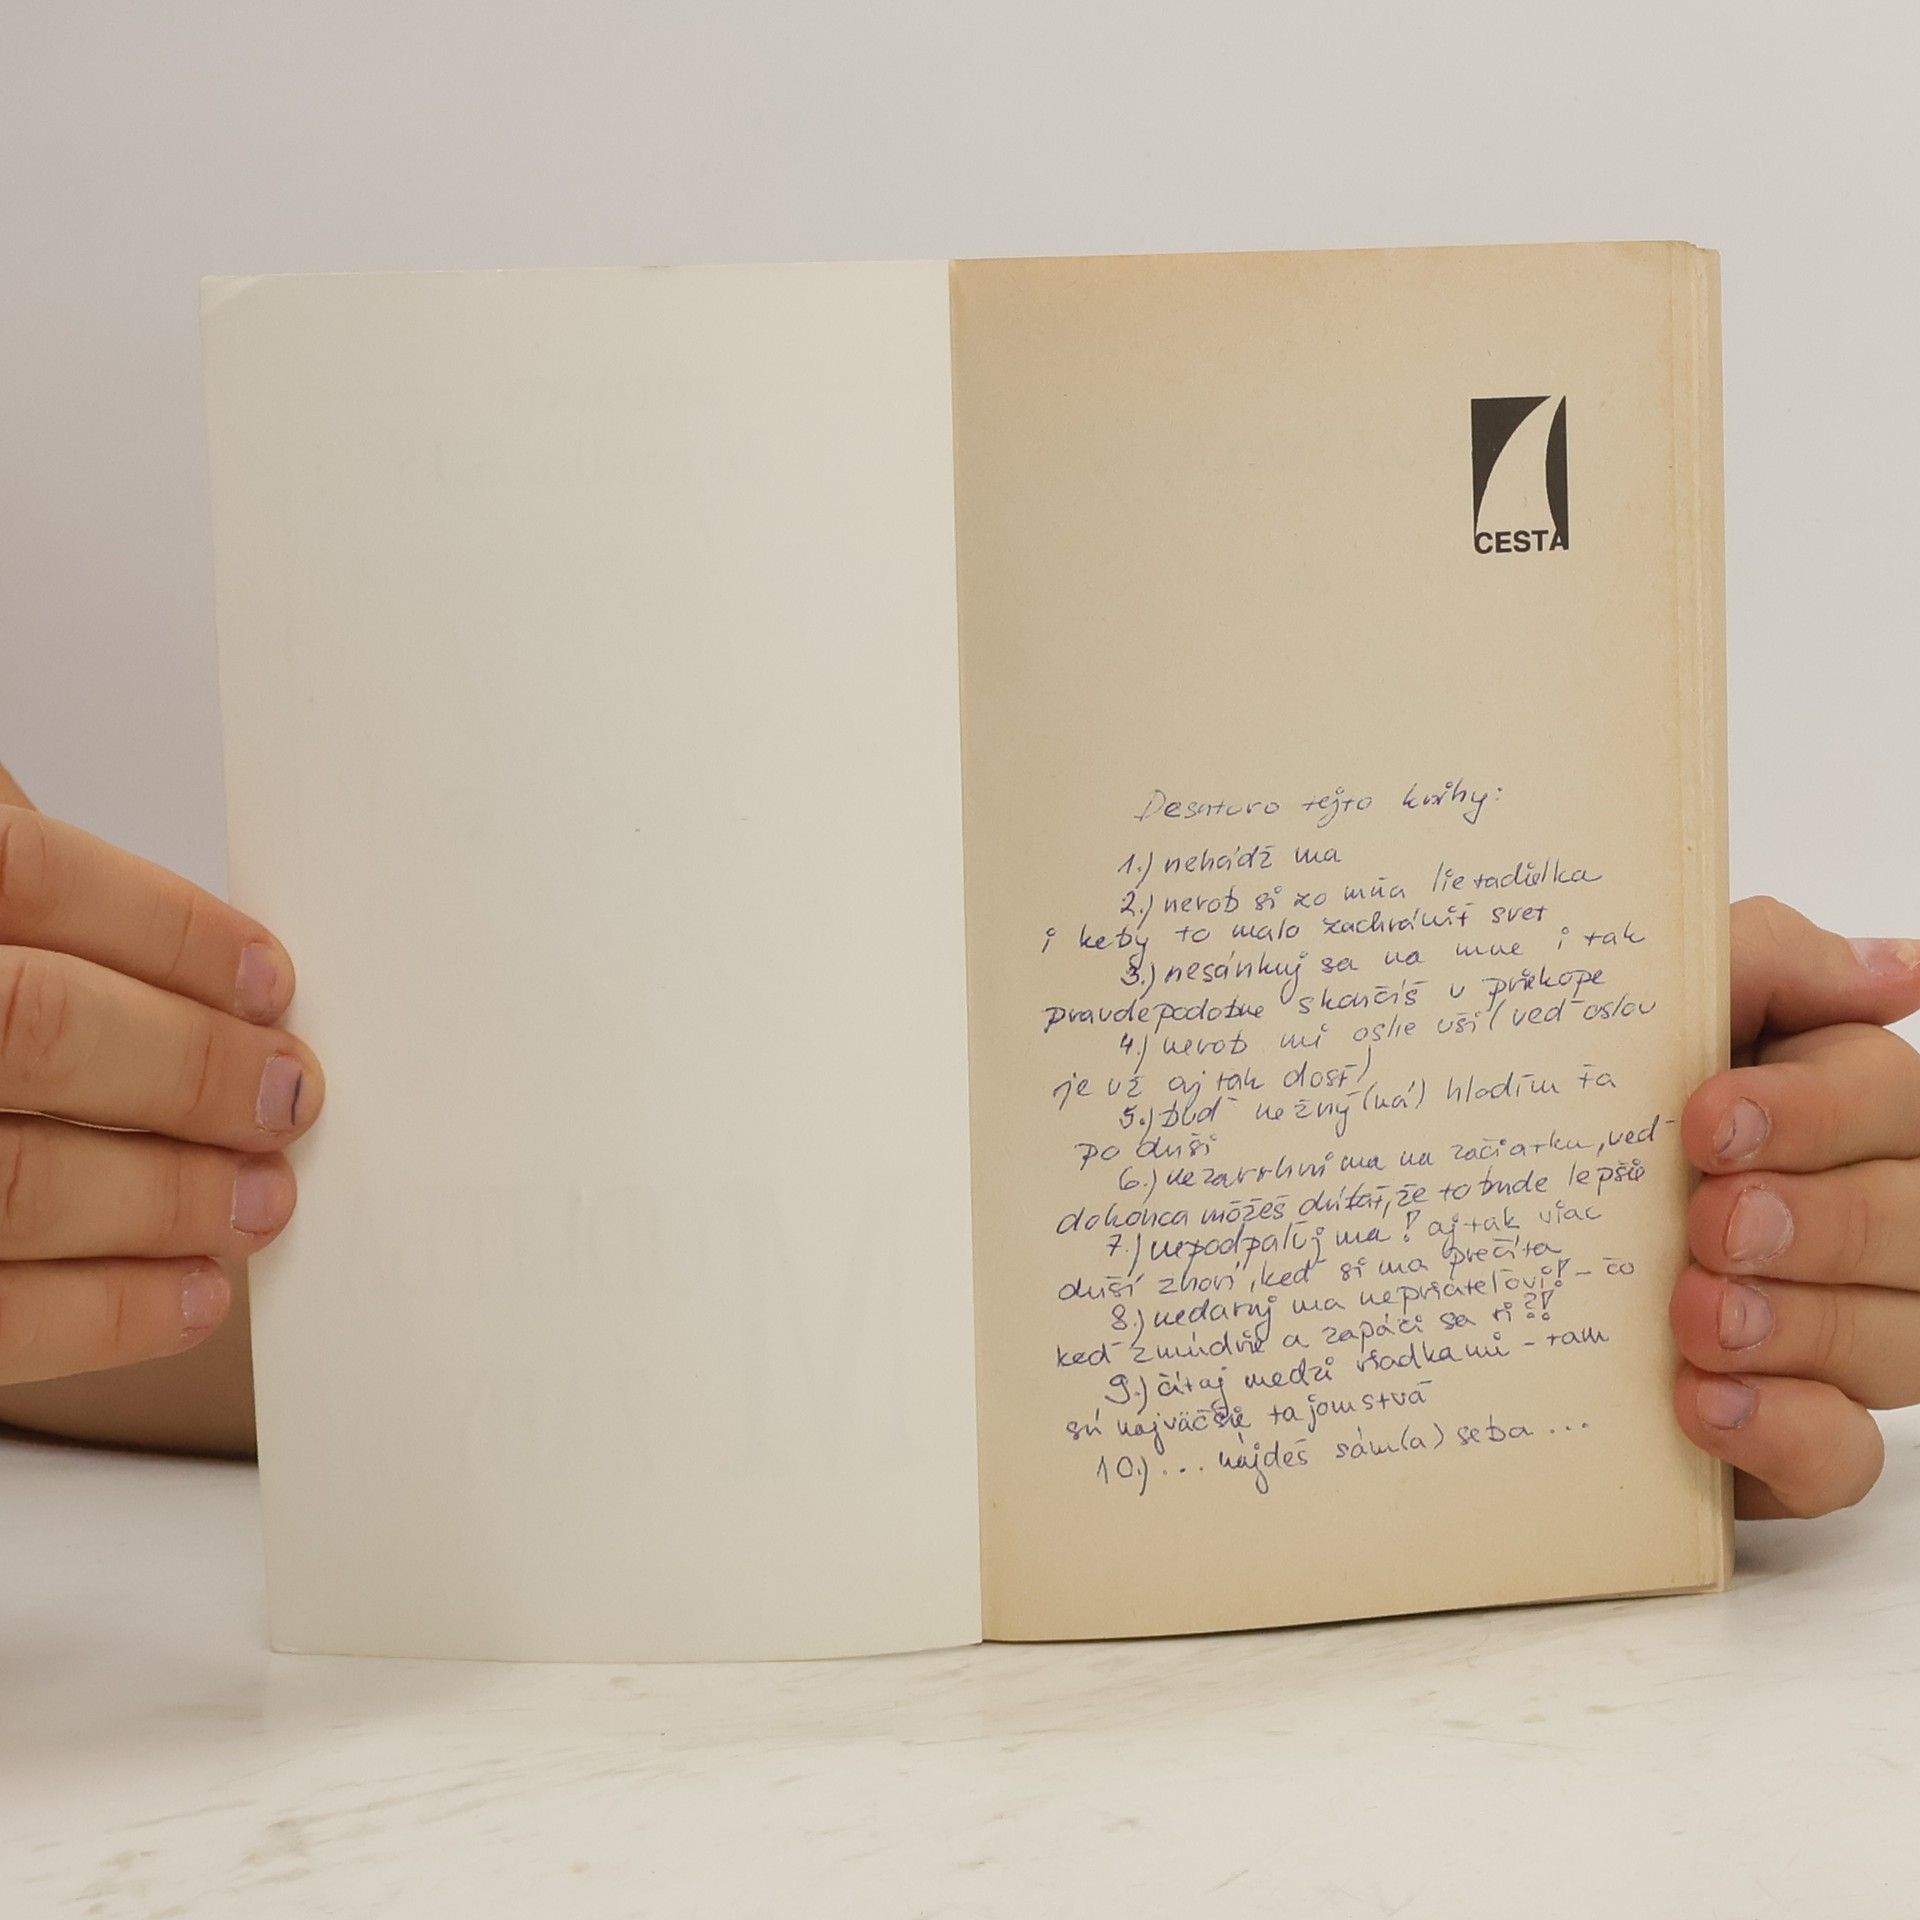 CESTA
Desatoro tejto knihy:
1.) nehádž ma
2.) nerob si zo mňa lietadielka
i keby to malo zachrániť svet
3.) nesánkuj sa na mne i tak
pravdepodobne skončíš v priekope
4.) nerob mi oslie uši (veď oslov
je už aj tak dosť)
5.) buď nežný(ná) hladím ťa
po duši
6.) nezavrhni ma na začiatku, veď
dokonca môžeš dúfať, že to bude lepšie
7.) nepodpaľuj ma! aj tak viac
duší zhorí, keď si ma prečíta
8.) nedaruj ma nepriateľovi! - čo
keď zmúdrie a zapáči sa ti?!
9.) čítaj medzi riadkami - tam
sú najväčšie tajomstvá
10.) ... nájdeš sám(a) seba ...